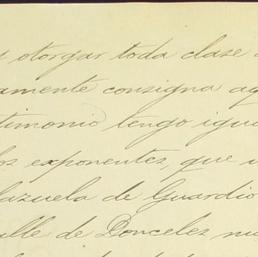 y otorgar toda clase
amente consigna aq
timonio tengo igua
los exponentes, que
lazuela de Guardio
alle de Donceles nu